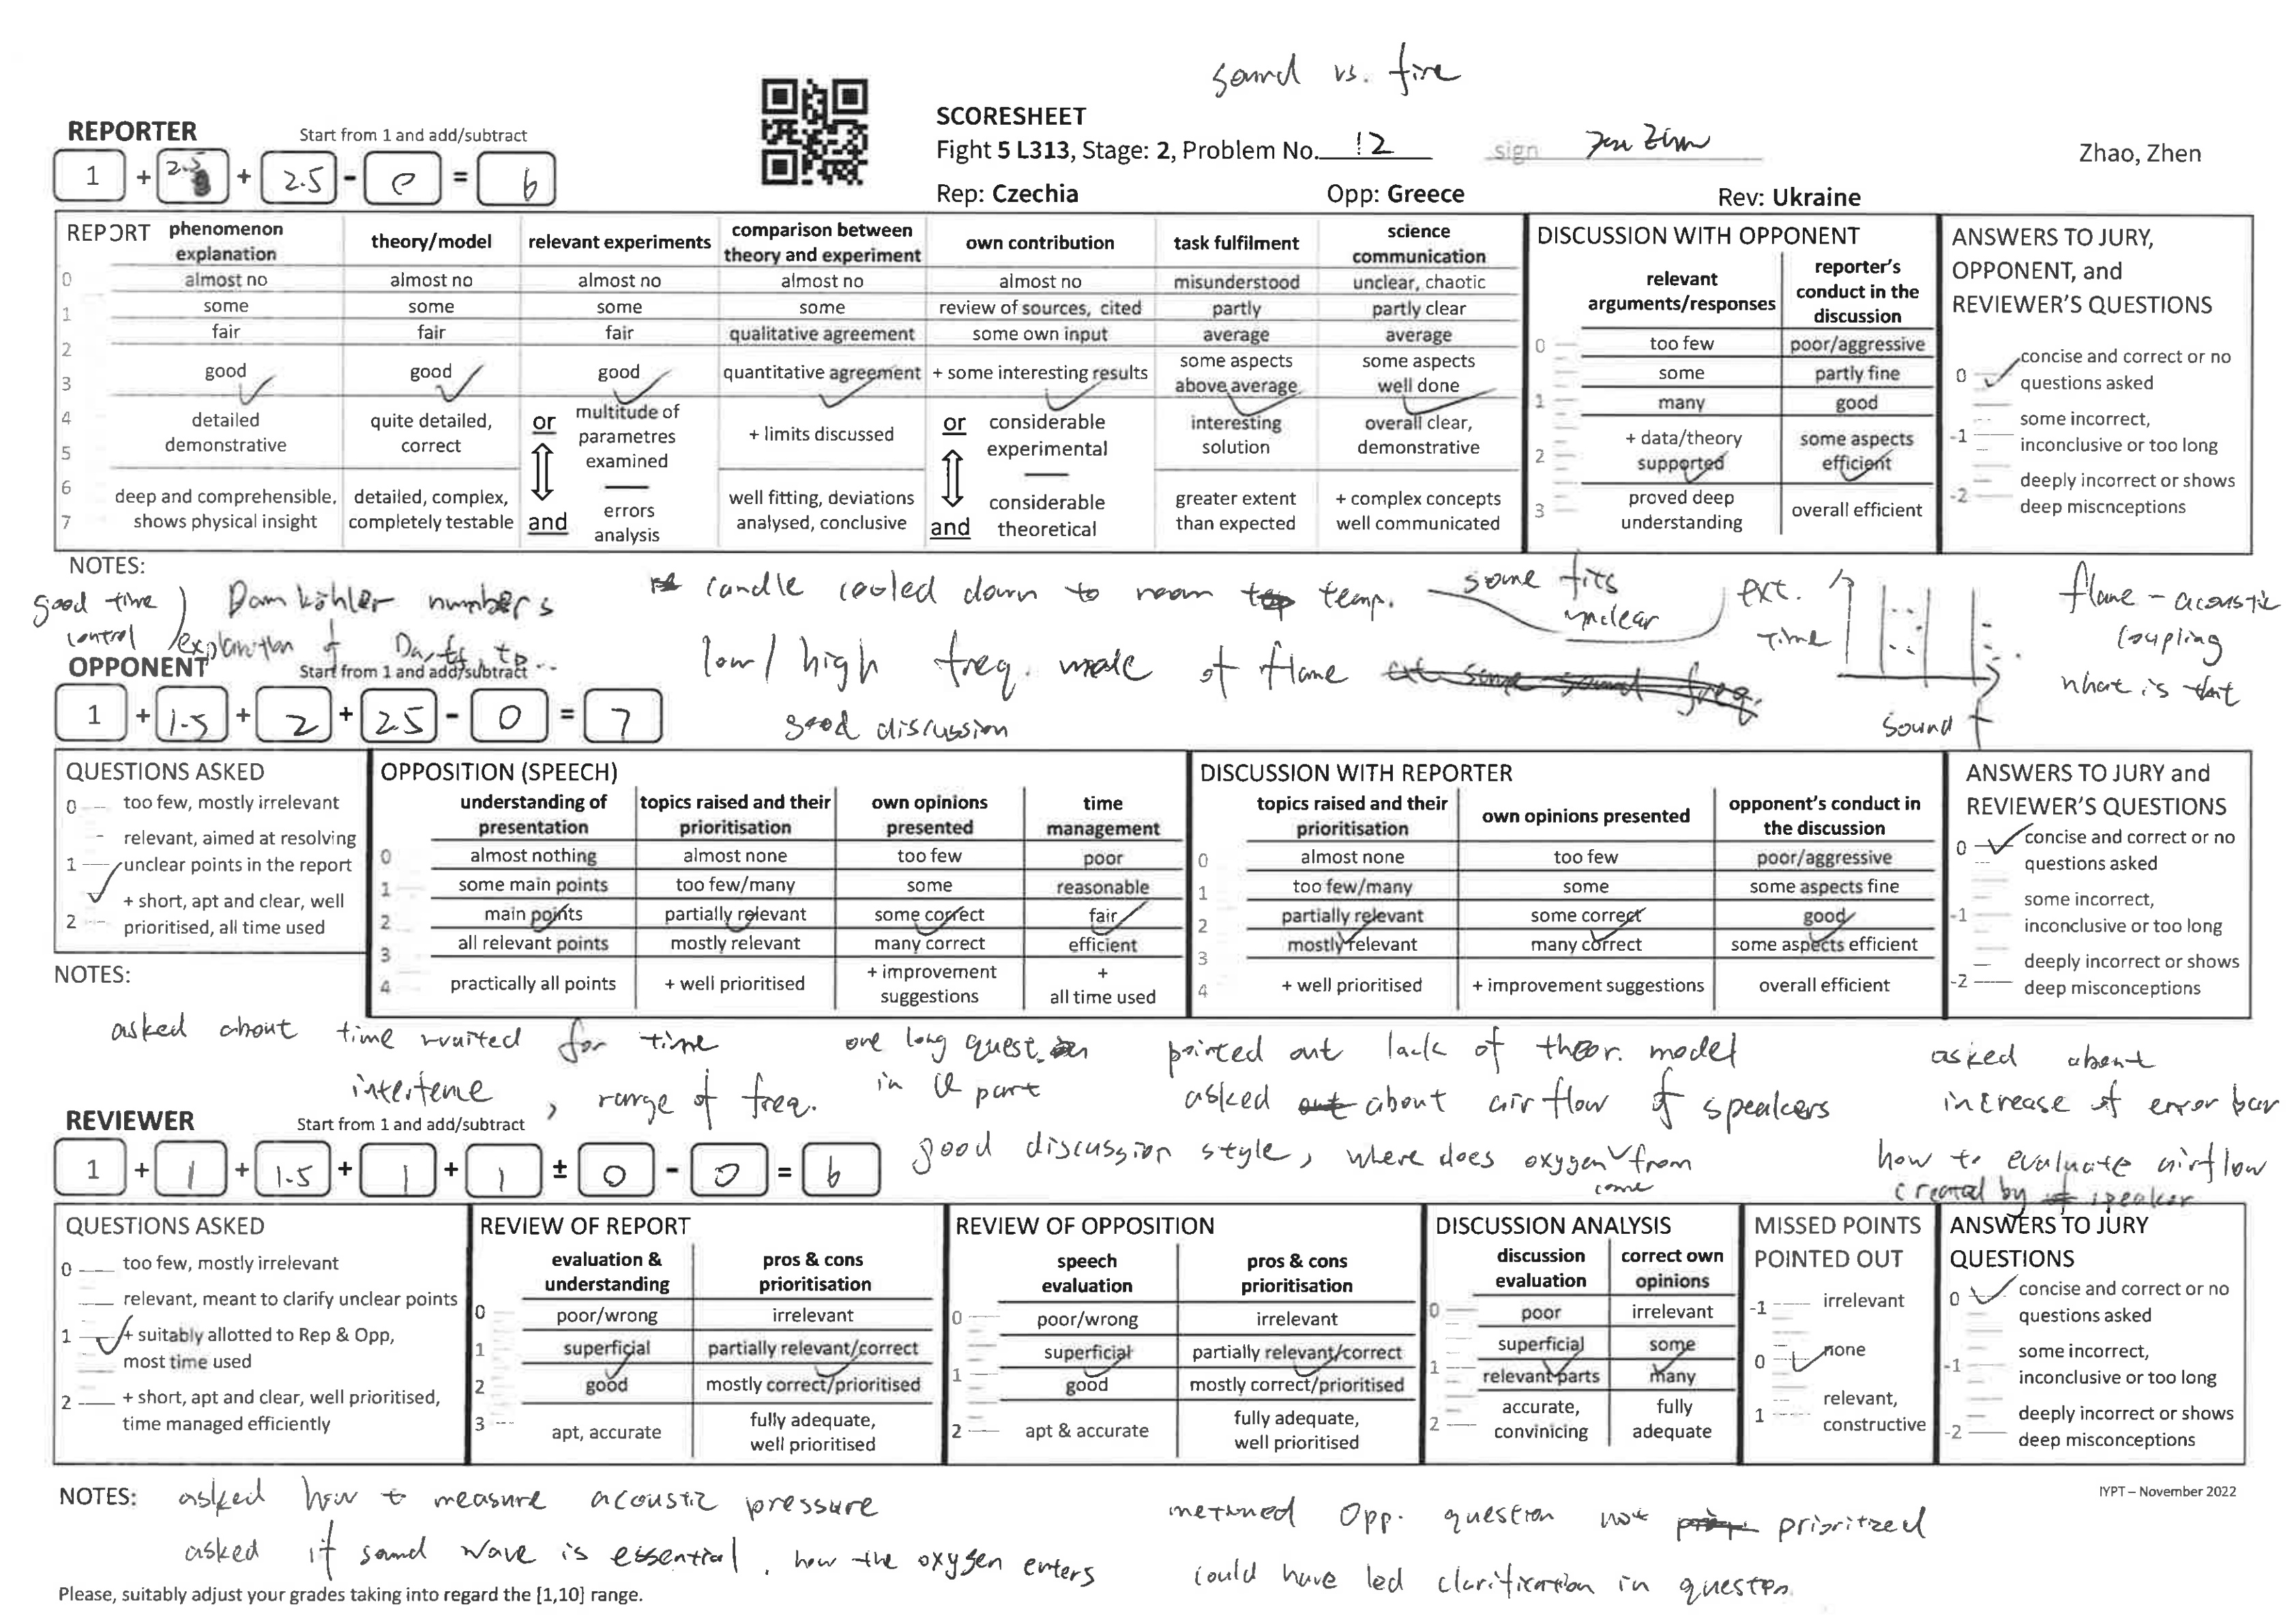 sound vs. fire
SCORESHEET
REPORTER Start from 1 and add/subtract
Fight 5 L313, Stage: 2, Problem No. 12 sign
Zhao, Zhen
1 + 2.5 + 2.5 - 0 = 6
Rep: Czechia Opp: Greece Rev: Ukraine
REPORT
phenomenon explanation
almost no
some
fair
good
detailed demonstrative
deep and comprehensible, shows physical insight
theory/model
almost no
some
fair
good
quite detailed, correct
detailed, complex, completely testable
relevant experiments
almost no
some
fair
good
or
multitude of parametres examined
and
errors analysis
comparison between theory and experiment
almost no
some
qualitative agreement
quantitative agreement
+ limits discussed
well fitting, deviations analysed, conclusive
own contribution
almost no
review of sources, cited
some own input
+ some interesting results
or
considerable experimental
and
considerable theoretical
task fulfilment
misunderstood
partly
average
some aspects above average
interesting solution
greater extent than expected
science communication
unclear, chaotic
partly clear
average
some aspects well done
overall clear, demonstrative
+ complex concepts well communicated
0
1
2
3
4
5
6
7
DISCUSSION WITH OPPONENT
relevant arguments/responses
too few
some
many
+ data/theory supported
proved deep understanding
reporter's conduct in the discussion
poor/aggressive
partly fine
good
some aspects efficient
overall efficient
0
1
2
3
ANSWERS TO JURY, OPPONENT, and REVIEWER'S QUESTIONS
0 concise and correct or no questions asked
-1 some incorrect, inconclusive or too long
-2 deeply incorrect or shows deep miscnceptions
NOTES:
good time control
Damköhler numbers
explanation of
candle cooled down to room temp.
some fits unclear
ext. time
sound f
flame - acoustic coupling
what is that
low / high freq. mode of flame
good discussion
OPPONENT Start from 1 and add/subtract
1 + 1.5 + 2 + 2.5 - 0 = 7
QUESTIONS ASKED
0 too few, mostly irrelevant
relevant, aimed at resolving
1 unclear points in the report
+ short, apt and clear, well
2 prioritised, all time used
OPPOSITION (SPEECH)
understanding of presentation
almost nothing
some main points
main points
all relevant points
practically all points
topics raised and their prioritisation
almost none
too few/many
partially relevant
mostly relevant
+ well prioritised
own opinions presented
too few
some
some correct
many correct
+ improvement suggestions
time management
poor
reasonable
fair
efficient
+ all time used
0
1
2
3
4
DISCUSSION WITH REPORTER
topics raised and their prioritisation
almost none
too few/many
partially relevant
mostly relevant
+ well prioritised
own opinions presented
too few
some
some correct
many correct
+ improvement suggestions
opponent's conduct in the discussion
poor/aggressive
some aspects fine
good
some aspects efficient
overall efficient
0
1
2
3
4
ANSWERS TO JURY and REVIEWER'S QUESTIONS
0 concise and correct or no questions asked
-1 some incorrect, inconclusive or too long
-2 deeply incorrect or shows deep misconceptions
NOTES:
asked about time waited for time
, range of freq.
one long question
in part
pointed out lack of theor. model
asked about airflow of speakers
good discussion style, where does oxygen come from
asked about
increase of error bar
how to evaluate airflow
created by speaker
REVIEWER Start from 1 and add/subtract
1 + 1 + 1.5 + 1 + 1 ± 0 - 0 = 6
QUESTIONS ASKED
0 too few, mostly irrelevant
relevant, meant to clarify unclear points
1 + suitably allotted to Rep & Opp,
most time used
2 + short, apt and clear, well prioritised,
time managed efficiently
REVIEW OF REPORT
evaluation & understanding
poor/wrong
superficial
good
apt, accurate
pros & cons prioritisation
irrelevant
partially relevant/correct
mostly correct/prioritised
fully adequate, well prioritised
0
1
2
3
REVIEW OF OPPOSITION
speech evaluation
poor/wrong
superficial
good
apt & accurate
pros & cons prioritisation
irrelevant
partially relevant/correct
mostly correct/prioritised
fully adequate, well prioritised
0
1
2
DISCUSSION ANALYSIS
discussion evaluation
poor
superficial
relevant parts
accurate, convinicing
correct own opinions
irrelevant
some
many
fully adequate
0
1
2
MISSED POINTS POINTED OUT
-1 irrelevant
0 none
1 relevant, constructive
ANSWERS TO JURY QUESTIONS
0 concise and correct or no questions asked
-1 some incorrect, inconclusive or too long
-2 deeply incorrect or shows deep misconceptions
IYPT – November 2022
NOTES: asked how to measure acoustic pressure
asked if sound wave is essential, how the oxygen enters
Opp. question not prioritized
could have led clarification in question
Please, suitably adjust your grades taking into regard the [1,10] range.